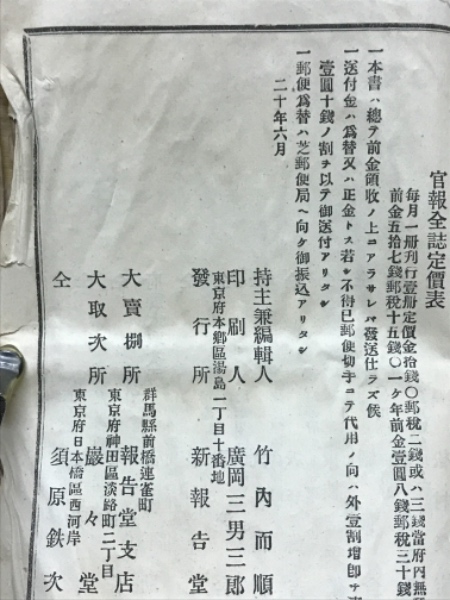 官報全誌定價表
毎月一册刊行壹册定價金拾錢〇郵税二錢或ハ三錢當府內無
前金五拾七錢郵税十五錢〇一ケ年前金壹圓八錢郵税三十錢
一本書ハ總テ前金領收ノ上ニアラサレバ發送仕ラズ候
一送付金ハ爲替又ハ正金トス若シ不得已郵便切手ニテ代用ノ向ハ外壹割增即チ
壹圓十錢ノ割ヲ以テ御送付アリタシ
一郵便爲替ハ芝郵便局ヘ向ケ御振込アリタシ
二十年六月
持主兼編輯人 竹內而順
印刷人 廣岡三男三郎
東京府本鄕區湯島一丁目十番地
發行所 新報告堂
群馬縣前橋連雀町
大賣捌所 報告堂支店
東京府神田區淡路町二丁目
大取次所 巖々堂
東京府日本橋區西河岸
仝 須原鉄次